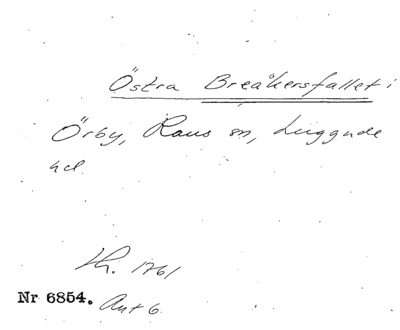 Östra Breåkersfallet i
Örby, Raus sn, Luggude
hd.
Lh. 1761
Nr 6854. Akt 6.